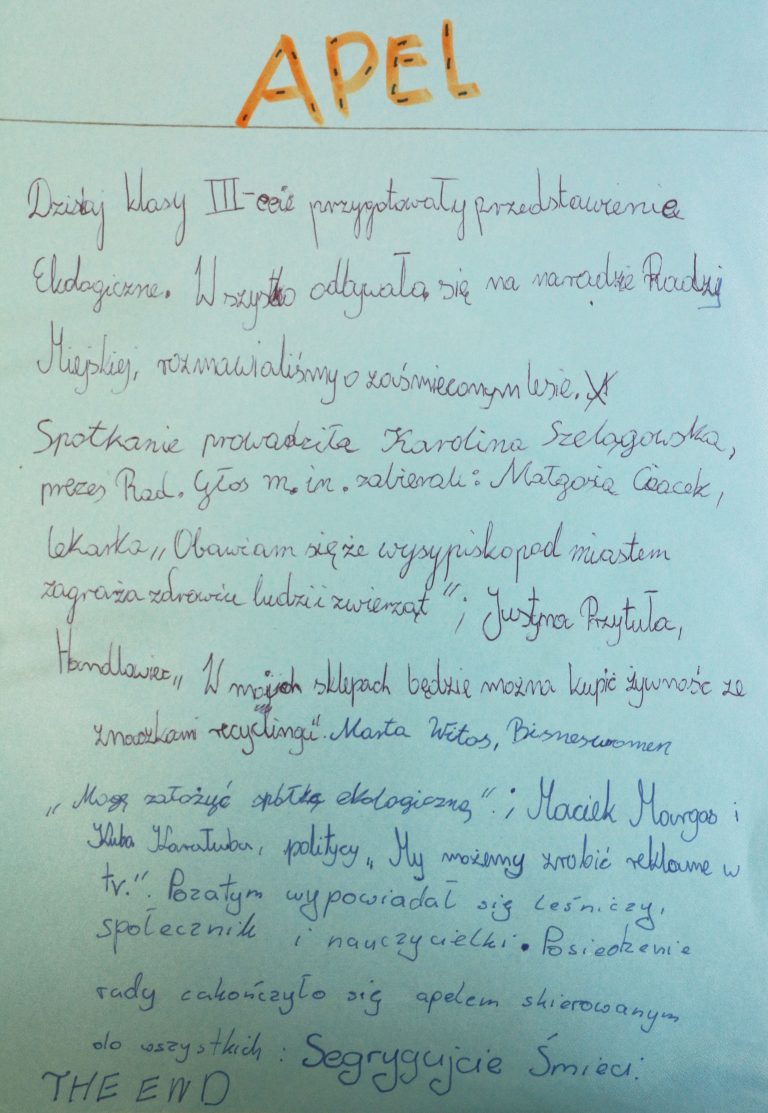 APEL
Dzisiaj klasy III-ecie przygotowały przedstawienie
Ekologiczne. Wszystko odbywało się na naradzie Radzij
Miejskiej, rozmawialiśmy o zaśmieconym lesie.
Spotkanie prowadziła Karolina Szelągowska,
prezes Rad. Głos m.in. zabierali: Małgosia
lekarka „Obawiam się że wysypisko pod miastem
zagraża zdrowiu ludzi i zwierząt"; Justyna Przytuła,
Handlowiec „W moich sklepach będzie można kupić żywność ze
znaczkami recyclingu". Marta Witos, Bisneswomen
„Mogę założyć spółkę ekologiczną".; Maciek Margas i
Kuba Karaluba, politycy „My możemy zrobić reklame w
tv.". Pozatym wypowiadał się leśniczy,
społecznik i nauczycielki. Posiedzenie
rady cakończyło się apelem skierowanym
do wszystkich: Segrygujcie Śmieci!
THE END